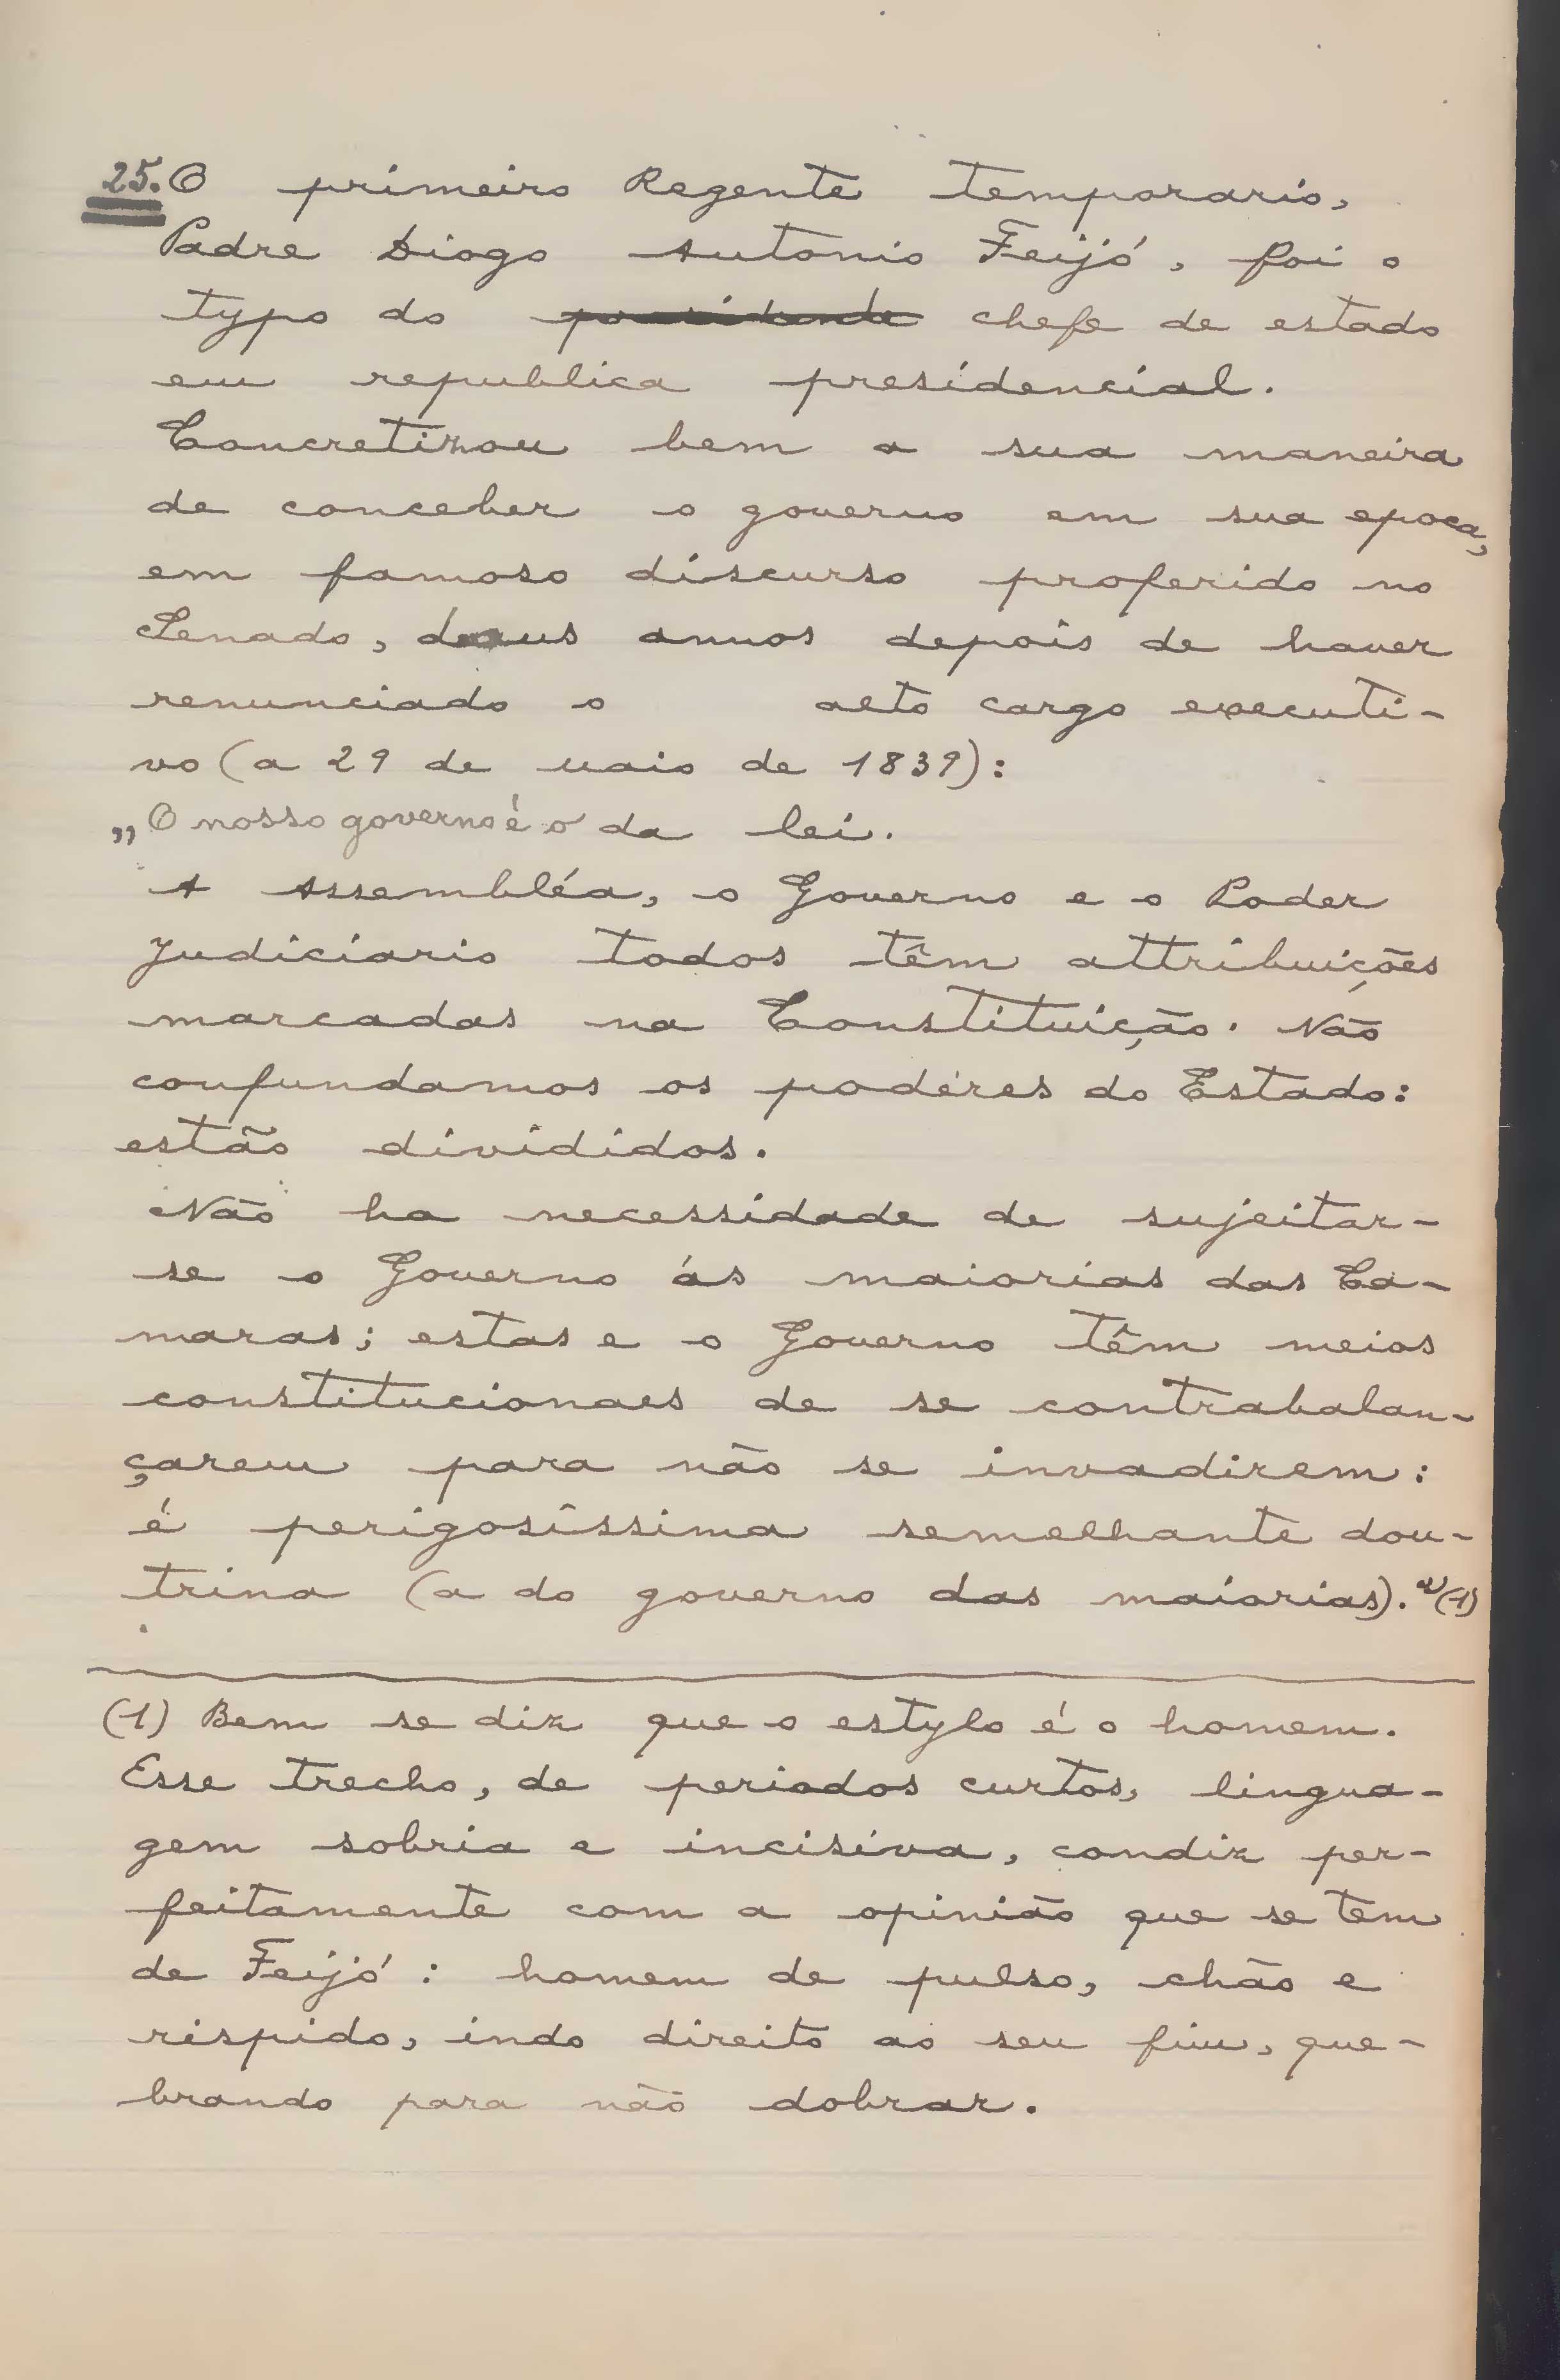 25. O primeiro Regente temporario,
Padre Diogo Antonio Feijó, foi o
typo do presidente chefe de estado
em republica presidencial.
Concretizou bem a sua maneira
de conceber o governo em sua epoca,
em famoso discurso proferido no
Senado, annos depois de haver
renunciado o alto cargo executi-
vo (a 29 de maio de 1839):
„O nosso governo é o da lei.
A Assembléa, o Governo e o Poder
Judiciario todos têm attribuições
marcadas na Constituição. Não
confundamos os podéres do Estado:
estão divididos.
Não ha necessidade de sujeitar-
se o Governo ás maiorias das Ca-
maras; estas e o Governo têm meios
constitucionaes de se contrabalan-
çarem para não se invadirem:
é perigosissima semelhante dou-
trina (a do governo das maiorias)." (1)
(1) Bem se diz que o estylo é o homem.
Esse trecho, de periodos curtos, lingua-
gem sobria e incisiva, condiz per-
feitamente com a opinião que se tem
de Feijó: homem de pulso, chão e
rispido, indo direito ao seu fim, que-
brando para não dobrar.